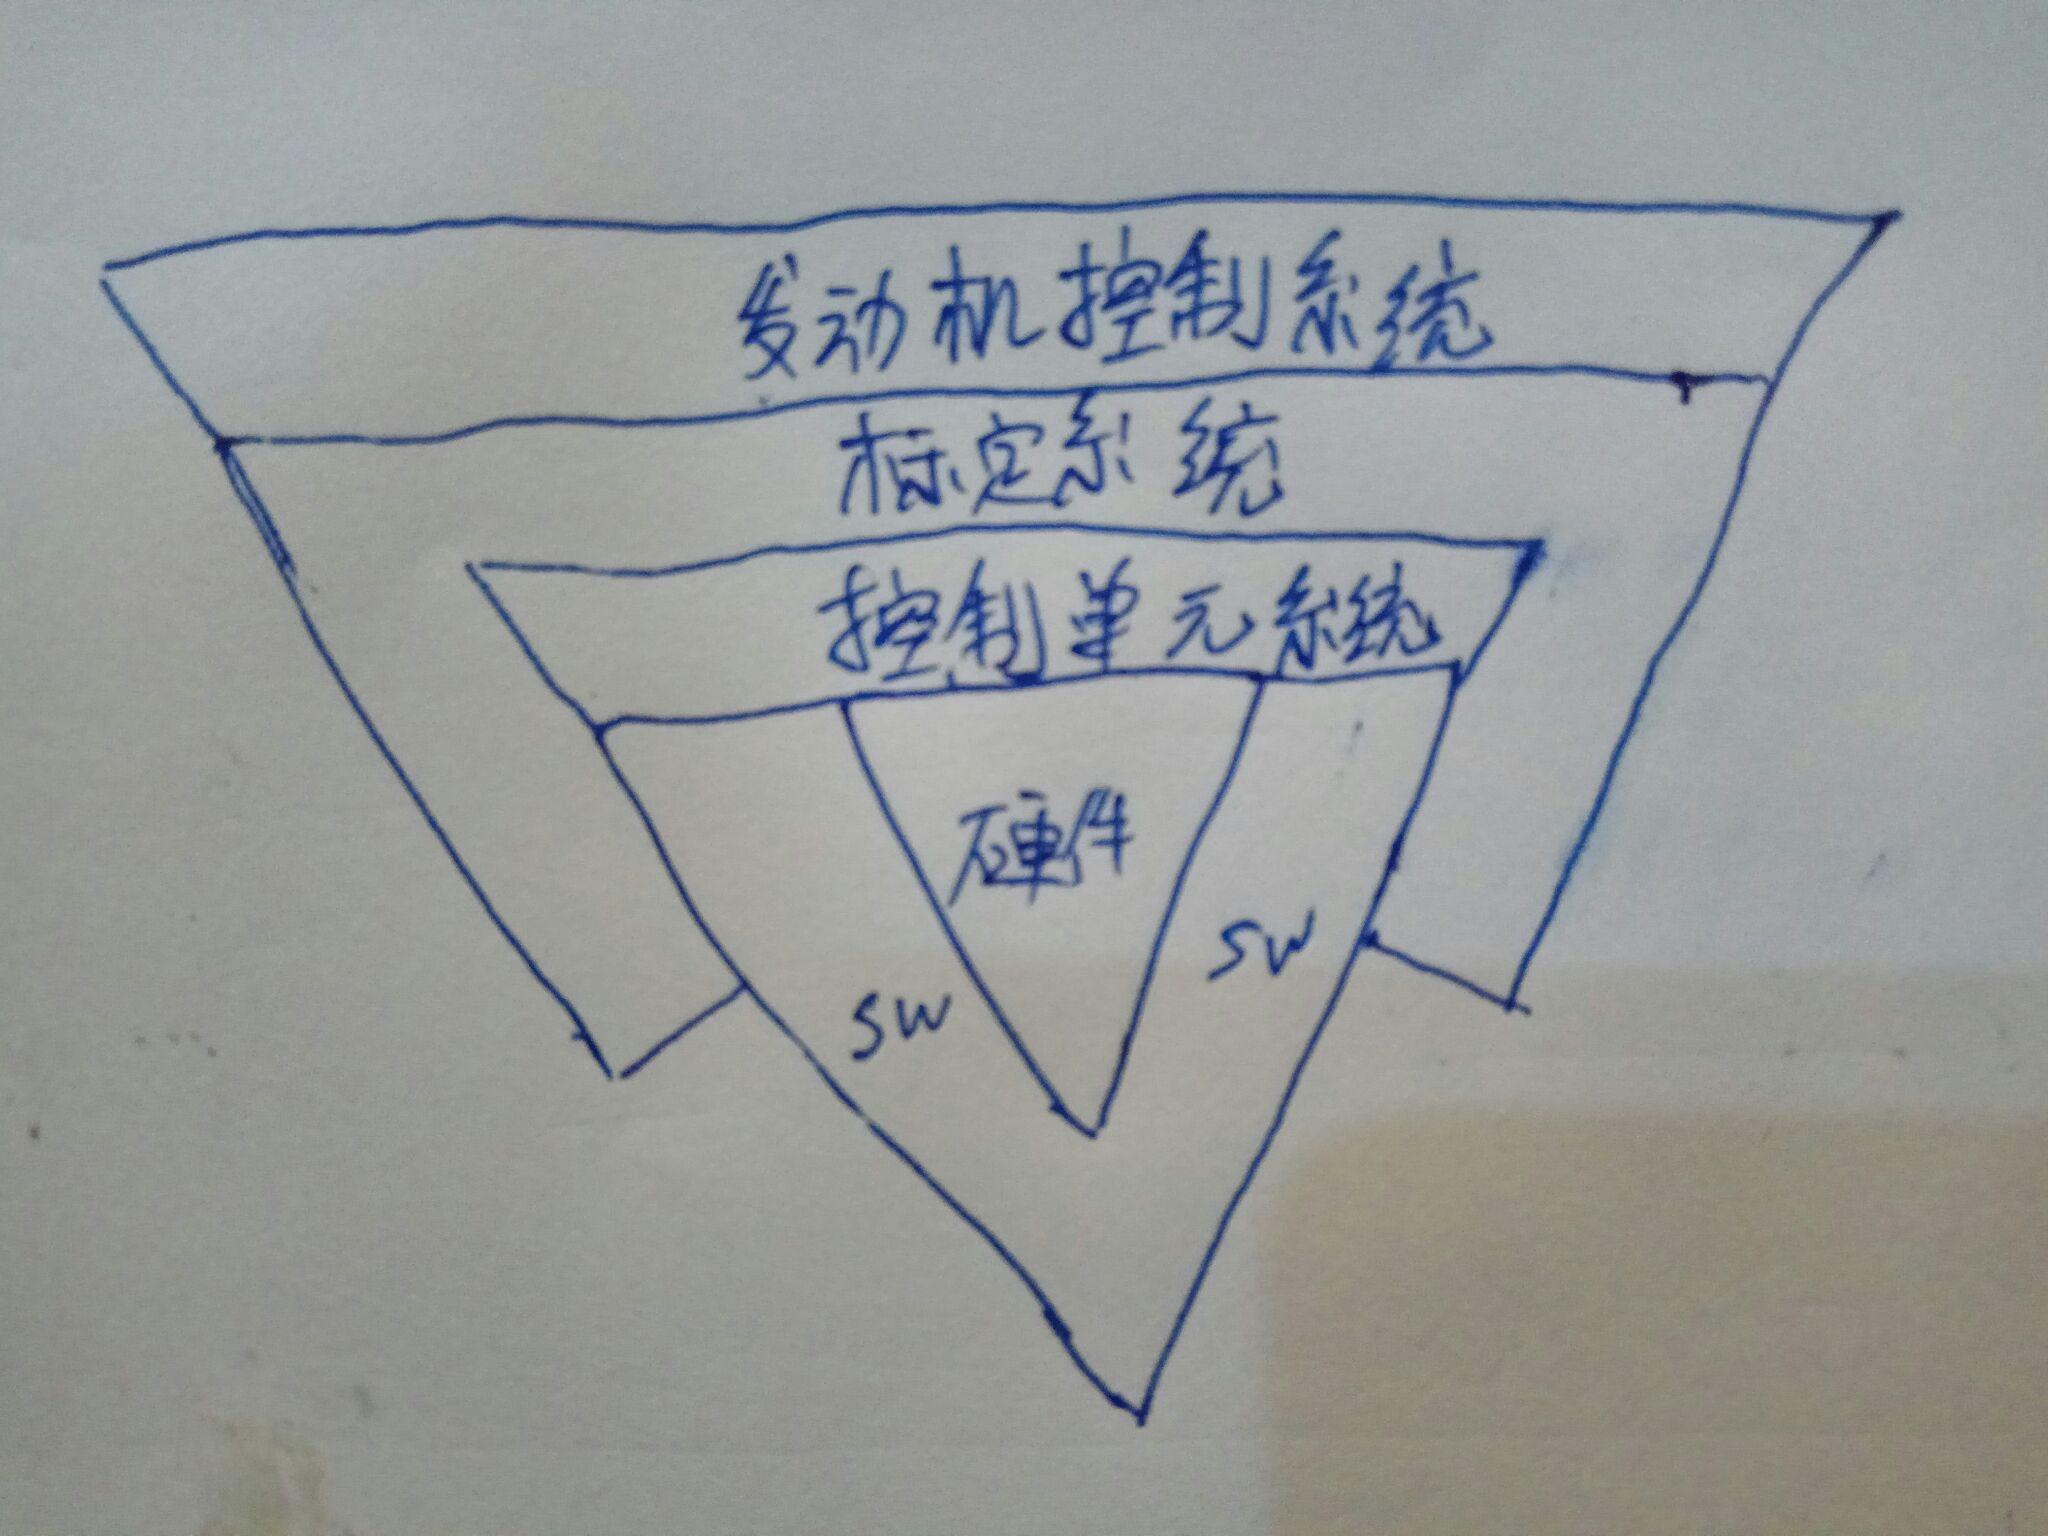 发动机控制系统
标定系统
控制单元系统
硬件
SW
SW